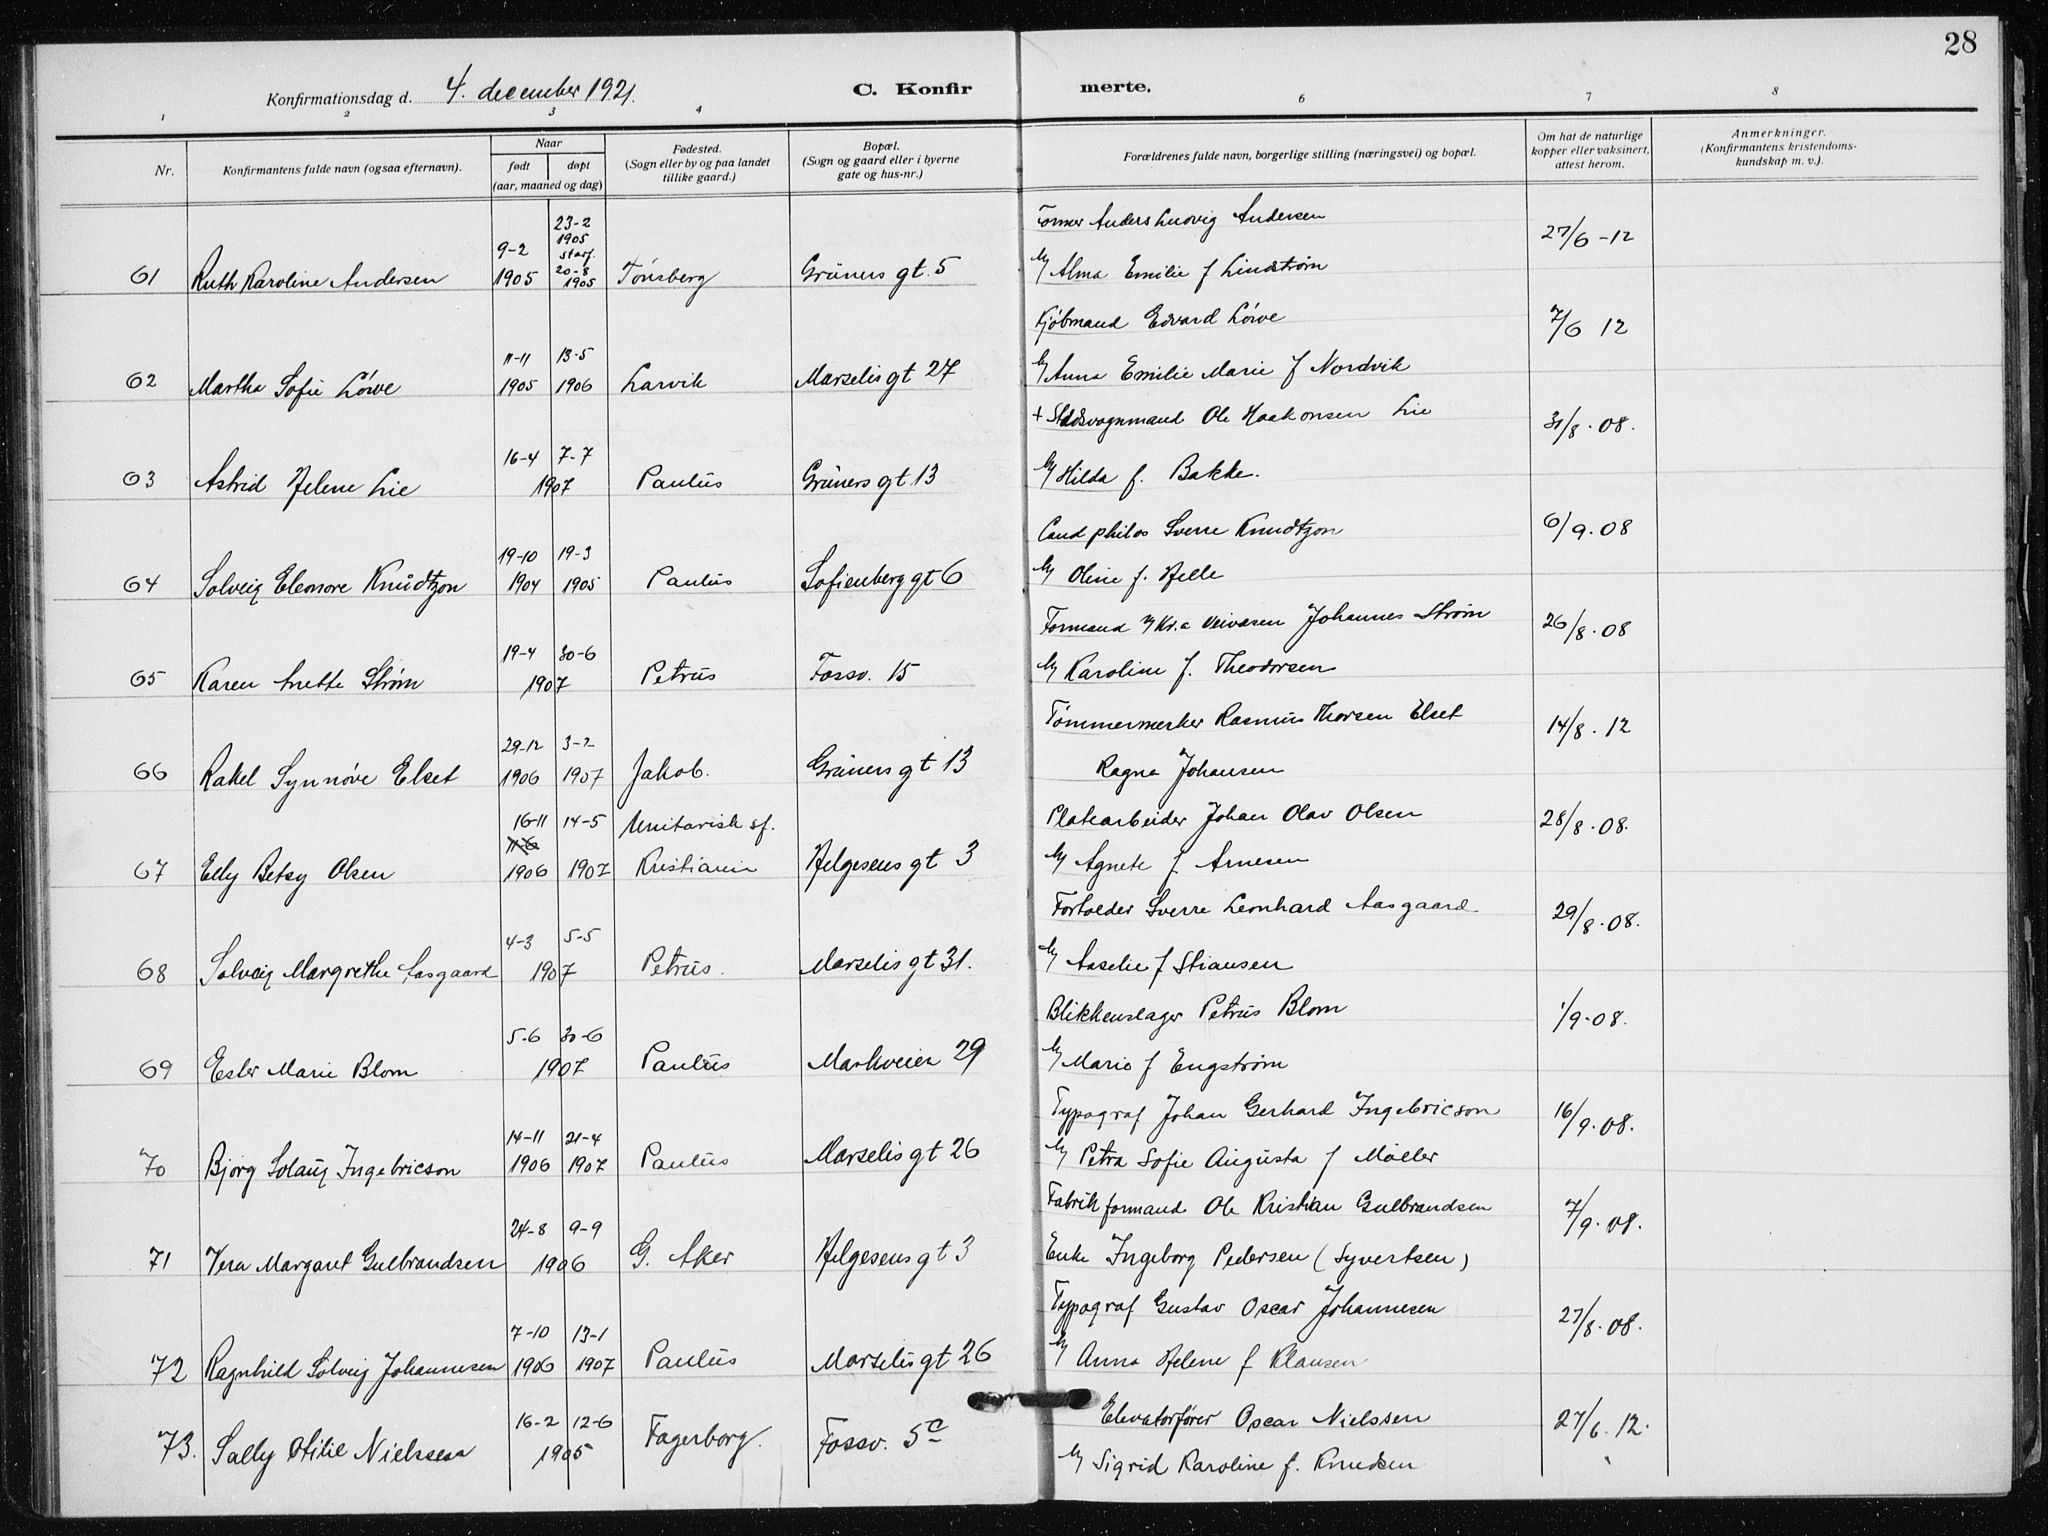 28
Konfirmationsdag d. 4. december 1921.
C. Konfir merte.
1 2 3 4 6 7 8
Nr.
Konfirmantens fulde navn (ogsaa efternavn).
Naar
født døpt
(aar, maaned og dag)
Fødested.
(Sogn eller by og paa landet
tillike gaard.)
Bopæl.
(Sogn og gaard eller i byerne
gate og hus-nr.)
Forældrenes fulde navn, borgerlige stilling (næringsvei) og bopæl.
Om hat de naturlige
kopper eller vaksinert,
attest herom.
Anmerkninger.
(Konfirmantens kristendoms-
kundskap m. v.).
Former Anders Ludvig Andersen
61 Ruth Karoline Andersen 9-2 1905 23-2 1905 staf. 20-8 1905 Tønsberg Grüners gt. 5 27/6 -12
Alma Emilie f Lindstrøm
Kjøbmand Edvard Løwe
62 Martha Sofie Løwe 11-11 1905 13-5 1906 Larvik Marselis gt 27 7/6 12
Anna Emilie Marie f Nordvik
+ Stadsvognmand Ole Haakonsen Lie
63 Astrid Helene Lie 16-4 7-7 1907 Paulus Grüners gt 13 31/8.08.
Hilda f. Bakke.
Cand philos Sverre Knudtzon
64 Solveig Eleonore Knudtzon 19-10 1904 19-3 1905 Paulus Sofienberg gt 6 6/9.08
Oline f. Helle
Formand Veivæsen Johannes Strøm
65 Karen Anette Strøm 19-4 30-6 1907 Petrus Fossv. 15 26/8.08
Karoline f. Theodorsen
Tømmermerker Rasmus Thorsen Elset
66 Rakel Synnøve Elset 29-12 1906 3-2 1907 Jakob. Grüners gt 13 14/8.12
Ragna Johansen
Platearbeider Johan Olav Olsen
67 Elly Betsy Olsen 16-11 1906 14-5 1907 Unitarisk sf. Kristiania Helgesens gt 3 28/8.08.
Agnete f Arnesen
Forgylder Sverre Leonhard Aasgaard
68 Solveig Margrethe Aasgaard 4-3 5-5 1907 Petrus. Marselis gt 31. 29/8.08.
Aaselie f Stiansen
Blikkenslager Petrus Blom
69 Ester Marie Blom 5-6 30-6 1907 Paulus Markveien 29 1/9.08.
Marie f Engstrøm
Typograf Johan Gerhard Ingebricson
70 Bjørg Solaug Ingebricson 14-11 1906 21-4 1907 Paulus Marselis gt 26 16/9.08.
Petra Sofie Augusta f Møller
Fabrikformand Ole Kristian Gulbrandsen
71 Vera Margaret Gulbrandsen 24-8 9-9 1906 G. Aker Helgesens gt 3 7/9.08.
Enke Ingeborg Pedersen (Syvertsen)
Typograf Gustav Oscar Johannesen
72 Ragnhild Solveig Johannesen 7-10 1906 13-1 1907 Paulus Marselis gt 26 27/8.08.
Anna Helene f Klausen
Elevatorfører Oscar Nielssen
73. Sally Otilie Nielssen 16-2 12-6 1905 Fagerborg. Fossv. 5c 27/6.12.
Sigrid Karoline f. Knudsen